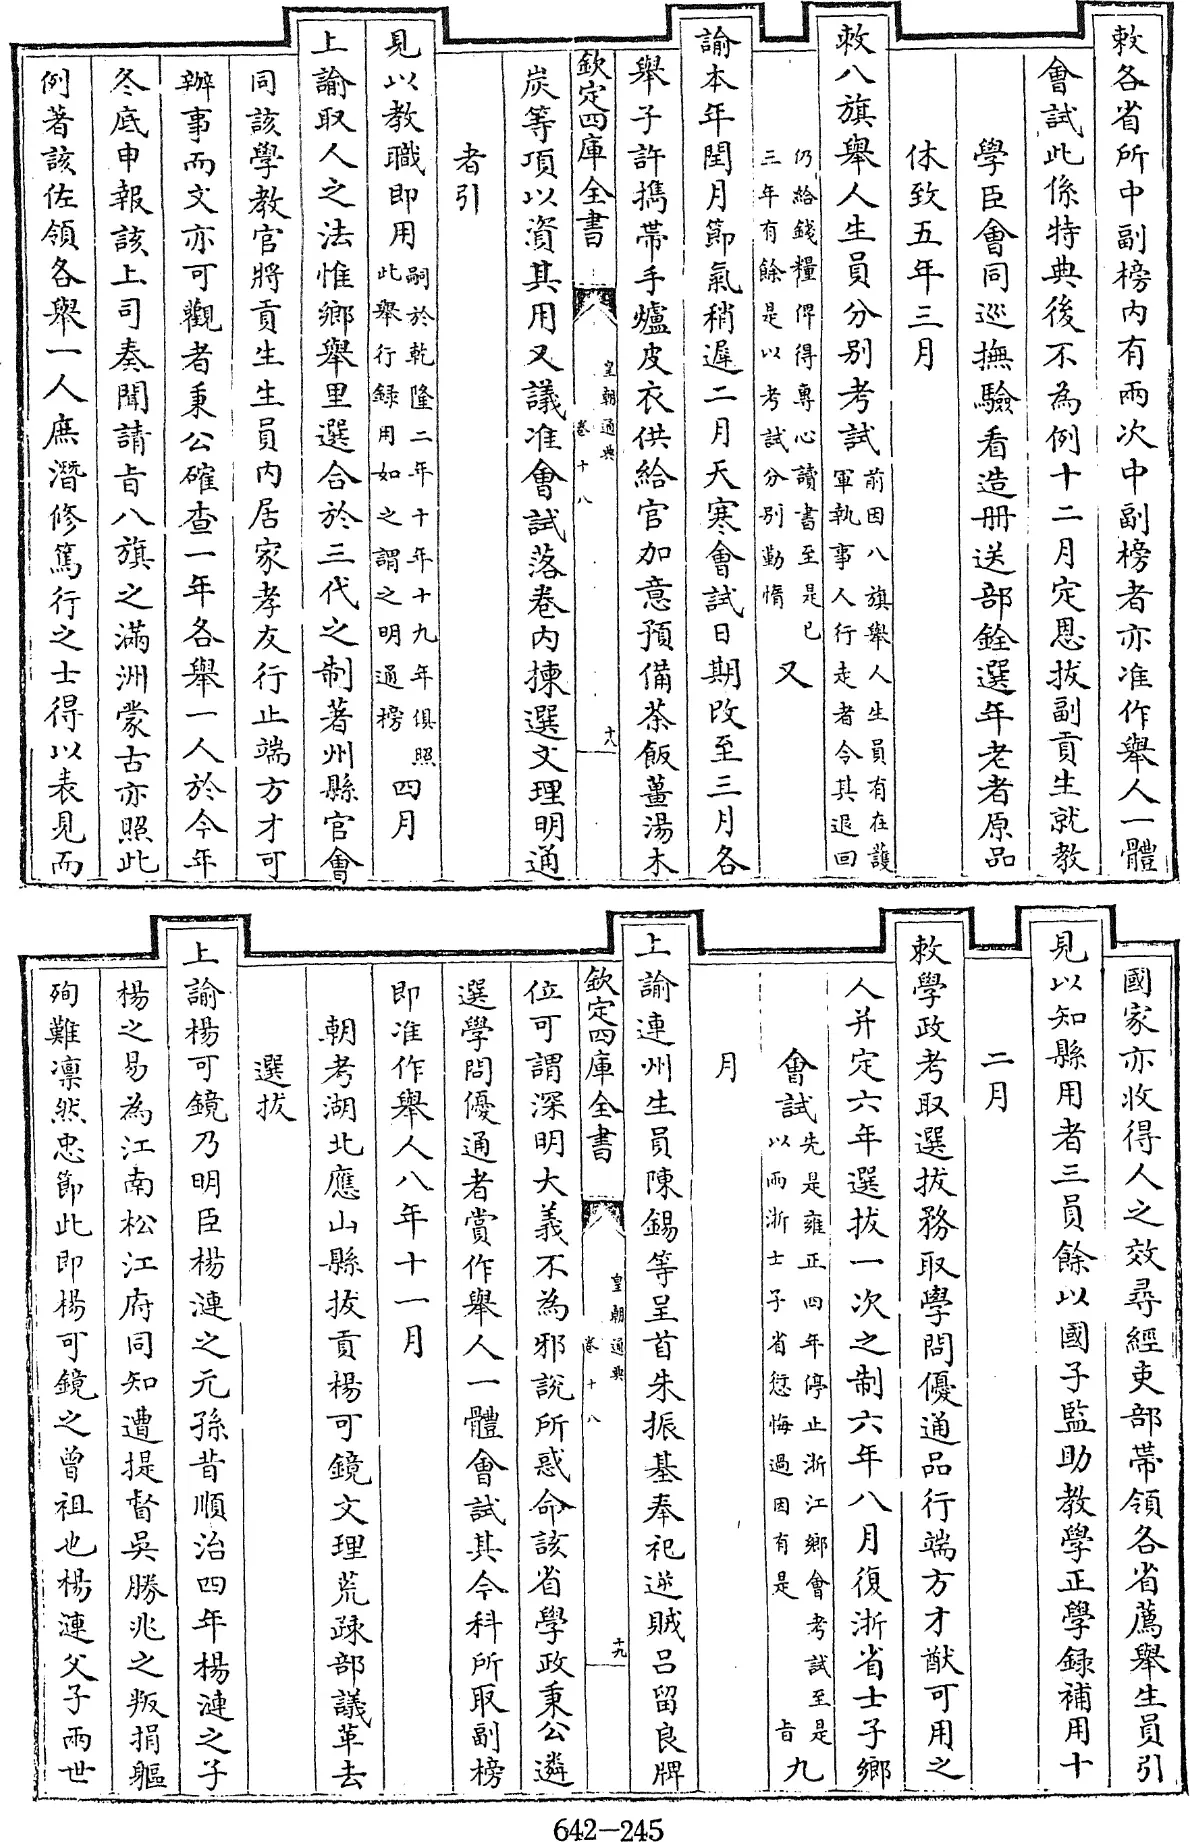 敕各省所中副榜内有兩次中副榜者亦准作舉人一體
會試此係特典後不為例十二月定恩拔副貢生就教
學臣會同巡撫驗看造冊送部銓選年老者原品
休致五年三月
敕八旗舉人生員分别考試前因八旗舉人生員有在護
軍執事人行走者令其退回
仍給錢糧俾得專心讀書至是已
三年有餘是以考試分别勤惰又
諭本年閏月節氣稍遲二月天寒會試日期改至三月各
舉子許擕帶手爐皮衣供給官加意預備茶飯薑湯木
欽定四庫全書
皇朝通典
卷十八
十八
炭等項以資其用又議准會試落卷内揀選文理明通
者引
見以教職即用嗣於乾隆二年十年十九年俱照
此舉行録用如之謂之明通榜四月
上諭取人之法惟鄉舉里選合於三代之制著州縣官會
同該學教官將貢生生員内居家孝友行止端方才可
辦事而文亦可觀者秉公確查一年各舉一人於今年
冬底申報該上司奏聞請旨八旗之滿洲蒙古亦照此
例著該佐領各舉一人庶潛修篤行之士得以表見而
國家亦收得人之效尋經吏部帶領各省薦舉生員引
見以知縣用者三員餘以國子監助教學正學録補用十
二月
敕學政考取選拔務取學問優通品行端方才猷可用之
人并定六年選拔一次之制六年八月復浙省士子鄉
會試先是雍正四年停止浙江鄉會考試至是
以兩浙士子省愆悔過因有是旨九
月
上諭連州生員陳錫等呈首朱振基奉祀逆賊吕留良牌
欽定四庫全書
皇朝通典
卷十八
十九
位可謂深明大義不為邪説所惑命該省學政秉公遴
選學問優通者賞作舉人一體會試其今科所取副榜
即准作舉人八年十一月
朝考湖北應山縣拔貢楊可鏡文理荒疎部議革去
選拔
上諭楊可鏡乃明臣楊漣之元孫昔順治四年楊漣之子
楊之易為江南松江府同知遭提督吳勝兆之叛捐軀
殉難凛然忠節此即楊可鏡之曾祖也楊漣父子兩世
642-245